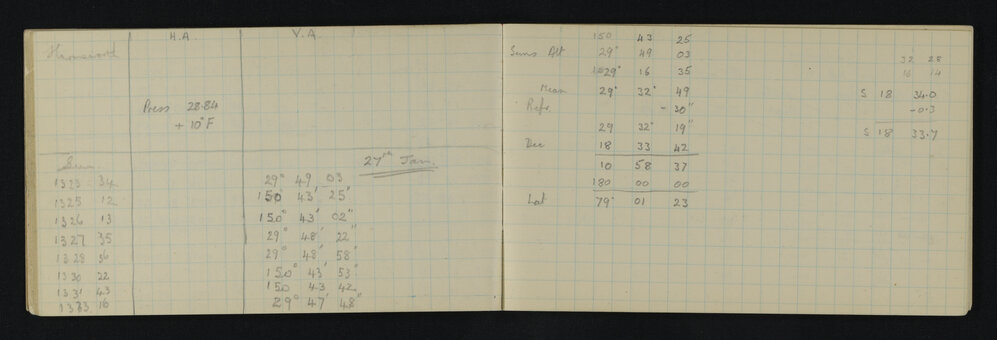 H.A. V.A.
Press 28.84
+ 10°F
27th Jan.
Sun
1323 34 29° 49 03
1325 12 150° 43' 25"
1326 13 150° 43' 02"
1327 35 29° 48' 22"
1328 36 29° 48' 58"
1330 22 150° 43' 53"
1331 43 150 43 42
1333 16 29° 47' 48"
150 43 25
Suns Alt 29° 49 03
29° 16 35
Mean 29° 32' 49
Refr - 30"
29 32' 19"
Dec 18 33 42
10 58 37
180 00 00
Lat 79° 01 23
32 28
16 14
S 18 34.0
-0.3
S 18 33.7